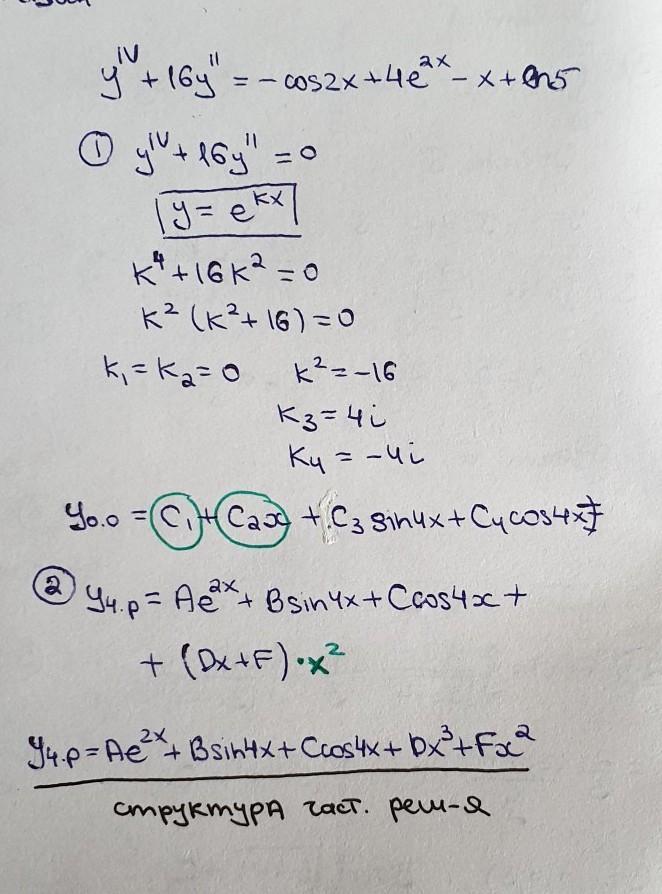 y^IV + 16y'' = - cos2x + 4e^2x - x + ln5
① y^IV + 16y'' = 0
y = e^kx
k^4 + 16k^2 = 0
k^2 (k^2 + 16) = 0
k₁ = k₂ = 0 k^2 = -16
k₃ = 4i
k₄ = -4i
y₀.₀ = C₁ + C₂x + C₃ sin4x + C₄ cos4x
② yч.р = Ae^2x + B sin4x + C cos4x +
+ (Dx + F) · x^2
yч.р = Ae^2x + B sin4x + C cos4x + Dx^3 + Fx^2
структура част. реш-я